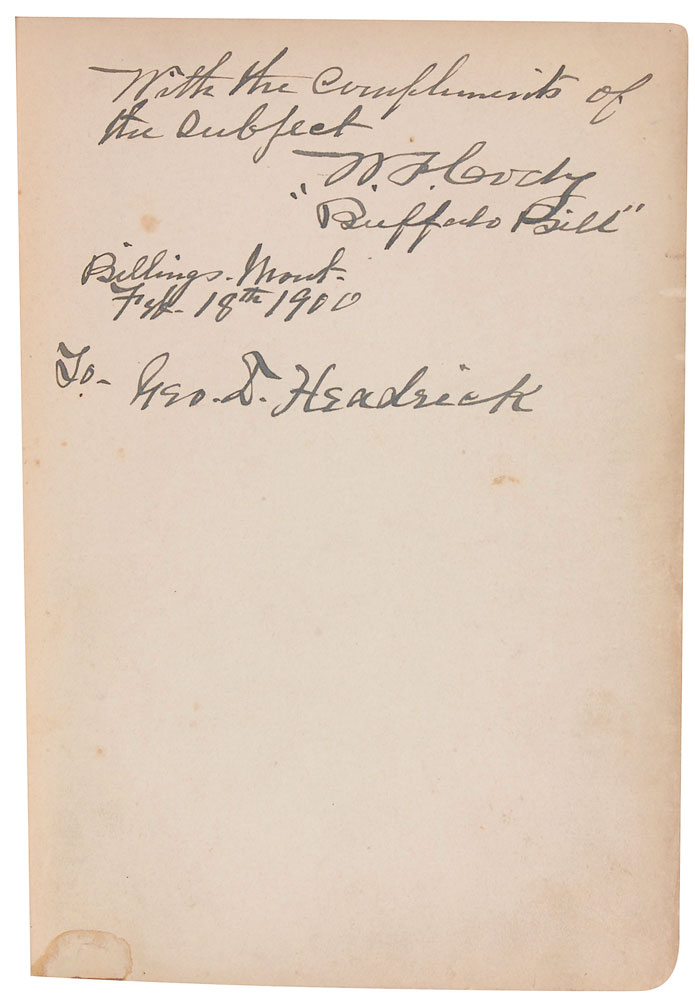 With the Compliments of
the subject
W. F. Cody
"Buffalo Bill"
Billings. Mont.
Feb. 18th 1900
To- Geo. T. Headrick